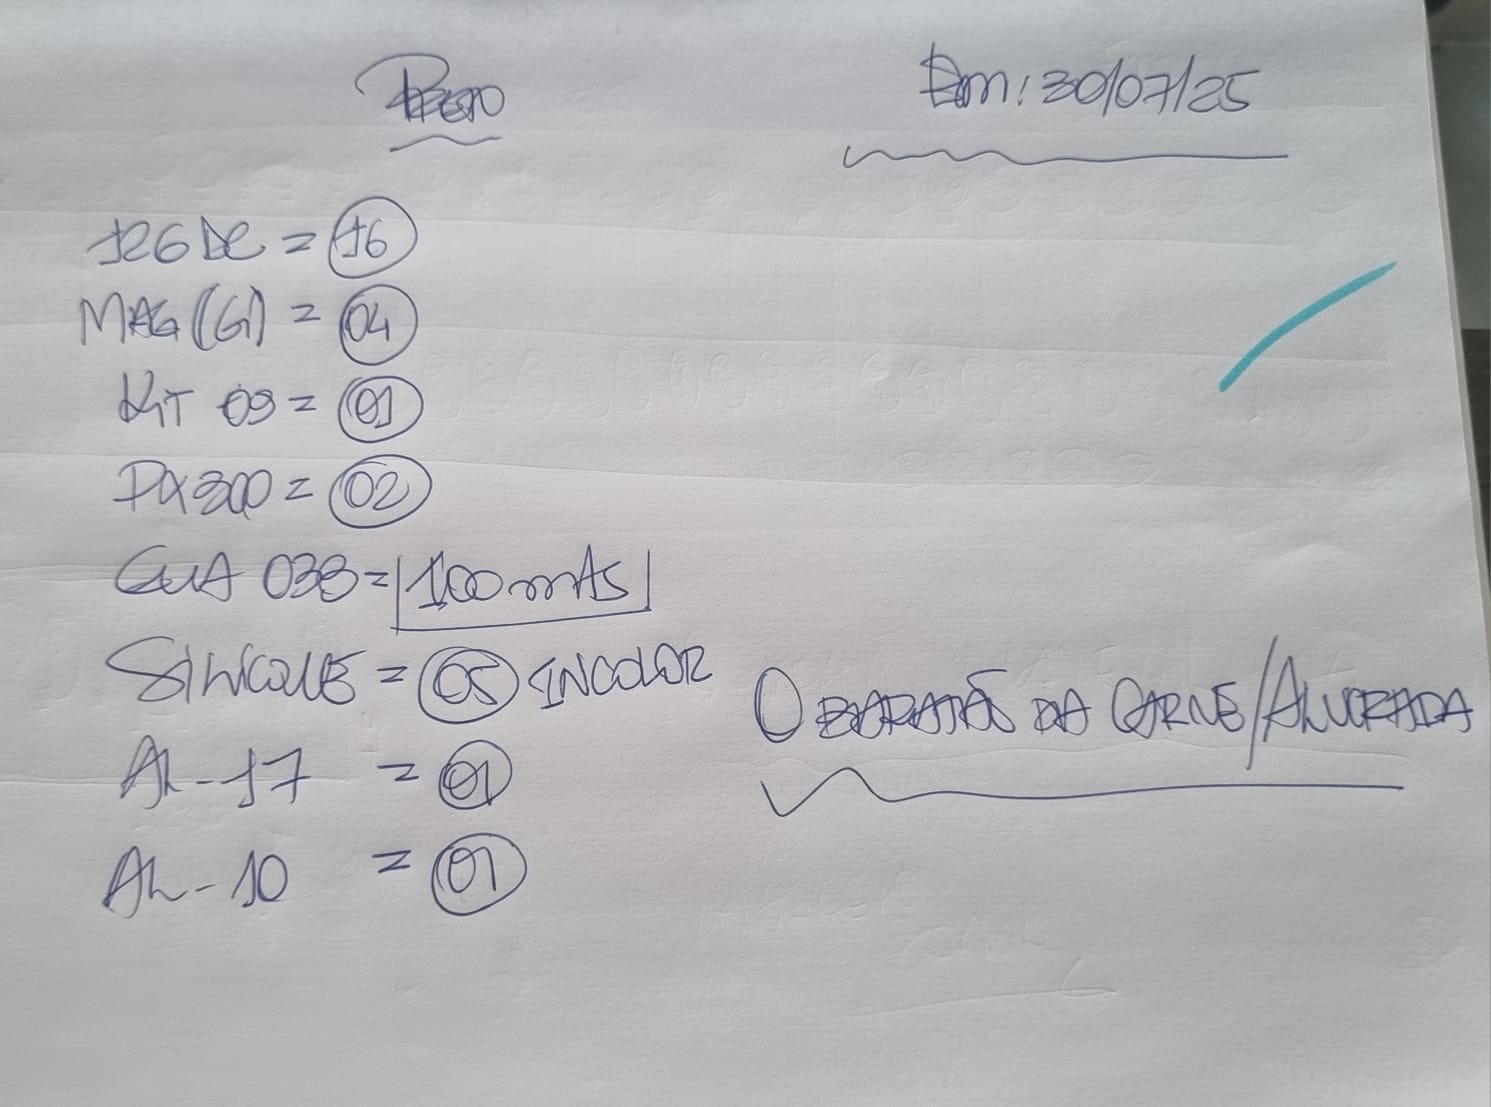 Em: 30/07/25
126 DC = 16
MAG (G) = 04
KIT 09 = 01
PX300 = 02
GUA 038 = 100 mts
SILICONE = 05 INCOLOR
O BARATÃO DA CARNE/ALVORADA
AL-17 = 01
AL-10 = 01